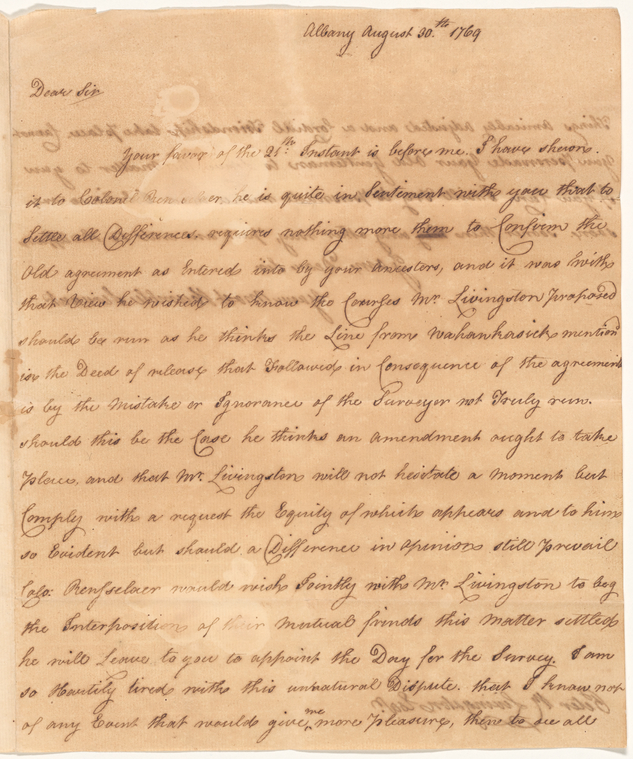 Albany August 30.th 1769
Dear Sir
Your favor of the 21st Instant is before me. I have shewn
it to Colonel he is quite in Sentiment with you that to
Settle all Differences requires nothing more them to Confirm the
Old agreement as Entered into by your Ancestors, and it was with
that View he wished to know the Courses Mr. Livingston Proposed
should be run as he thinks the Line from Wahankasick mention'd
in the Deed of release that Followed in Consequence of the agreement
is by the Mistake or Ignorance of the Surveyor not Truly run.
should this be the Case he thinks an amendment ought to take
Place, and that Mr. Livingston will not hesitate a moment but
Comply with a request the Equity of which appears and to him
so Evident but should a Difference in opinion still Prevail
Colo: Renfselaer would wish Jointly with Mr. Livingston to beg
the Interposition of their Mutual friends this Matter settled
he will Leave to you to appoint the Day for the Survey. I am
so Heartily tired with this unnatural Dispute. that I know not
of any Event that would give me more Pleasure, then to see all
Peter R. Livingston Esqr.